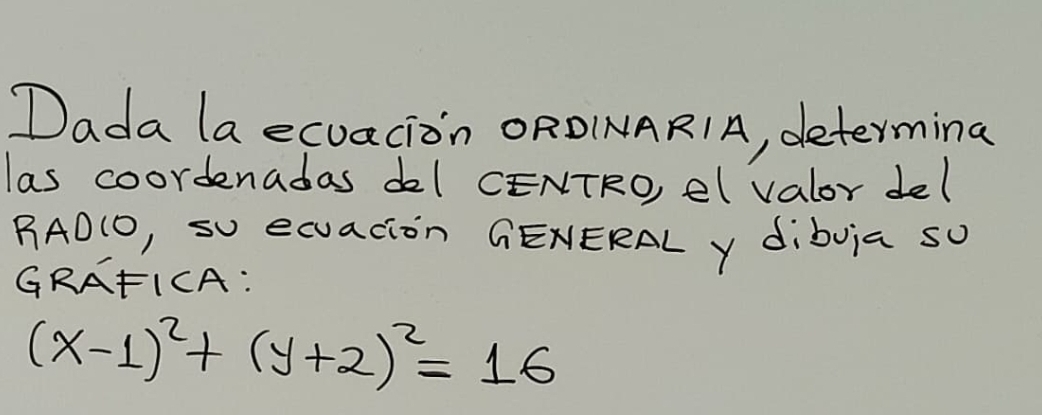 Dada la ecuación ORDINARIA, determina
las coordenadas del CENTRO, el valor del
RADIO, su ecuación GENERAL y dibuja su
GRÁFICA:
(x-1)²+ (y+2)²= 16